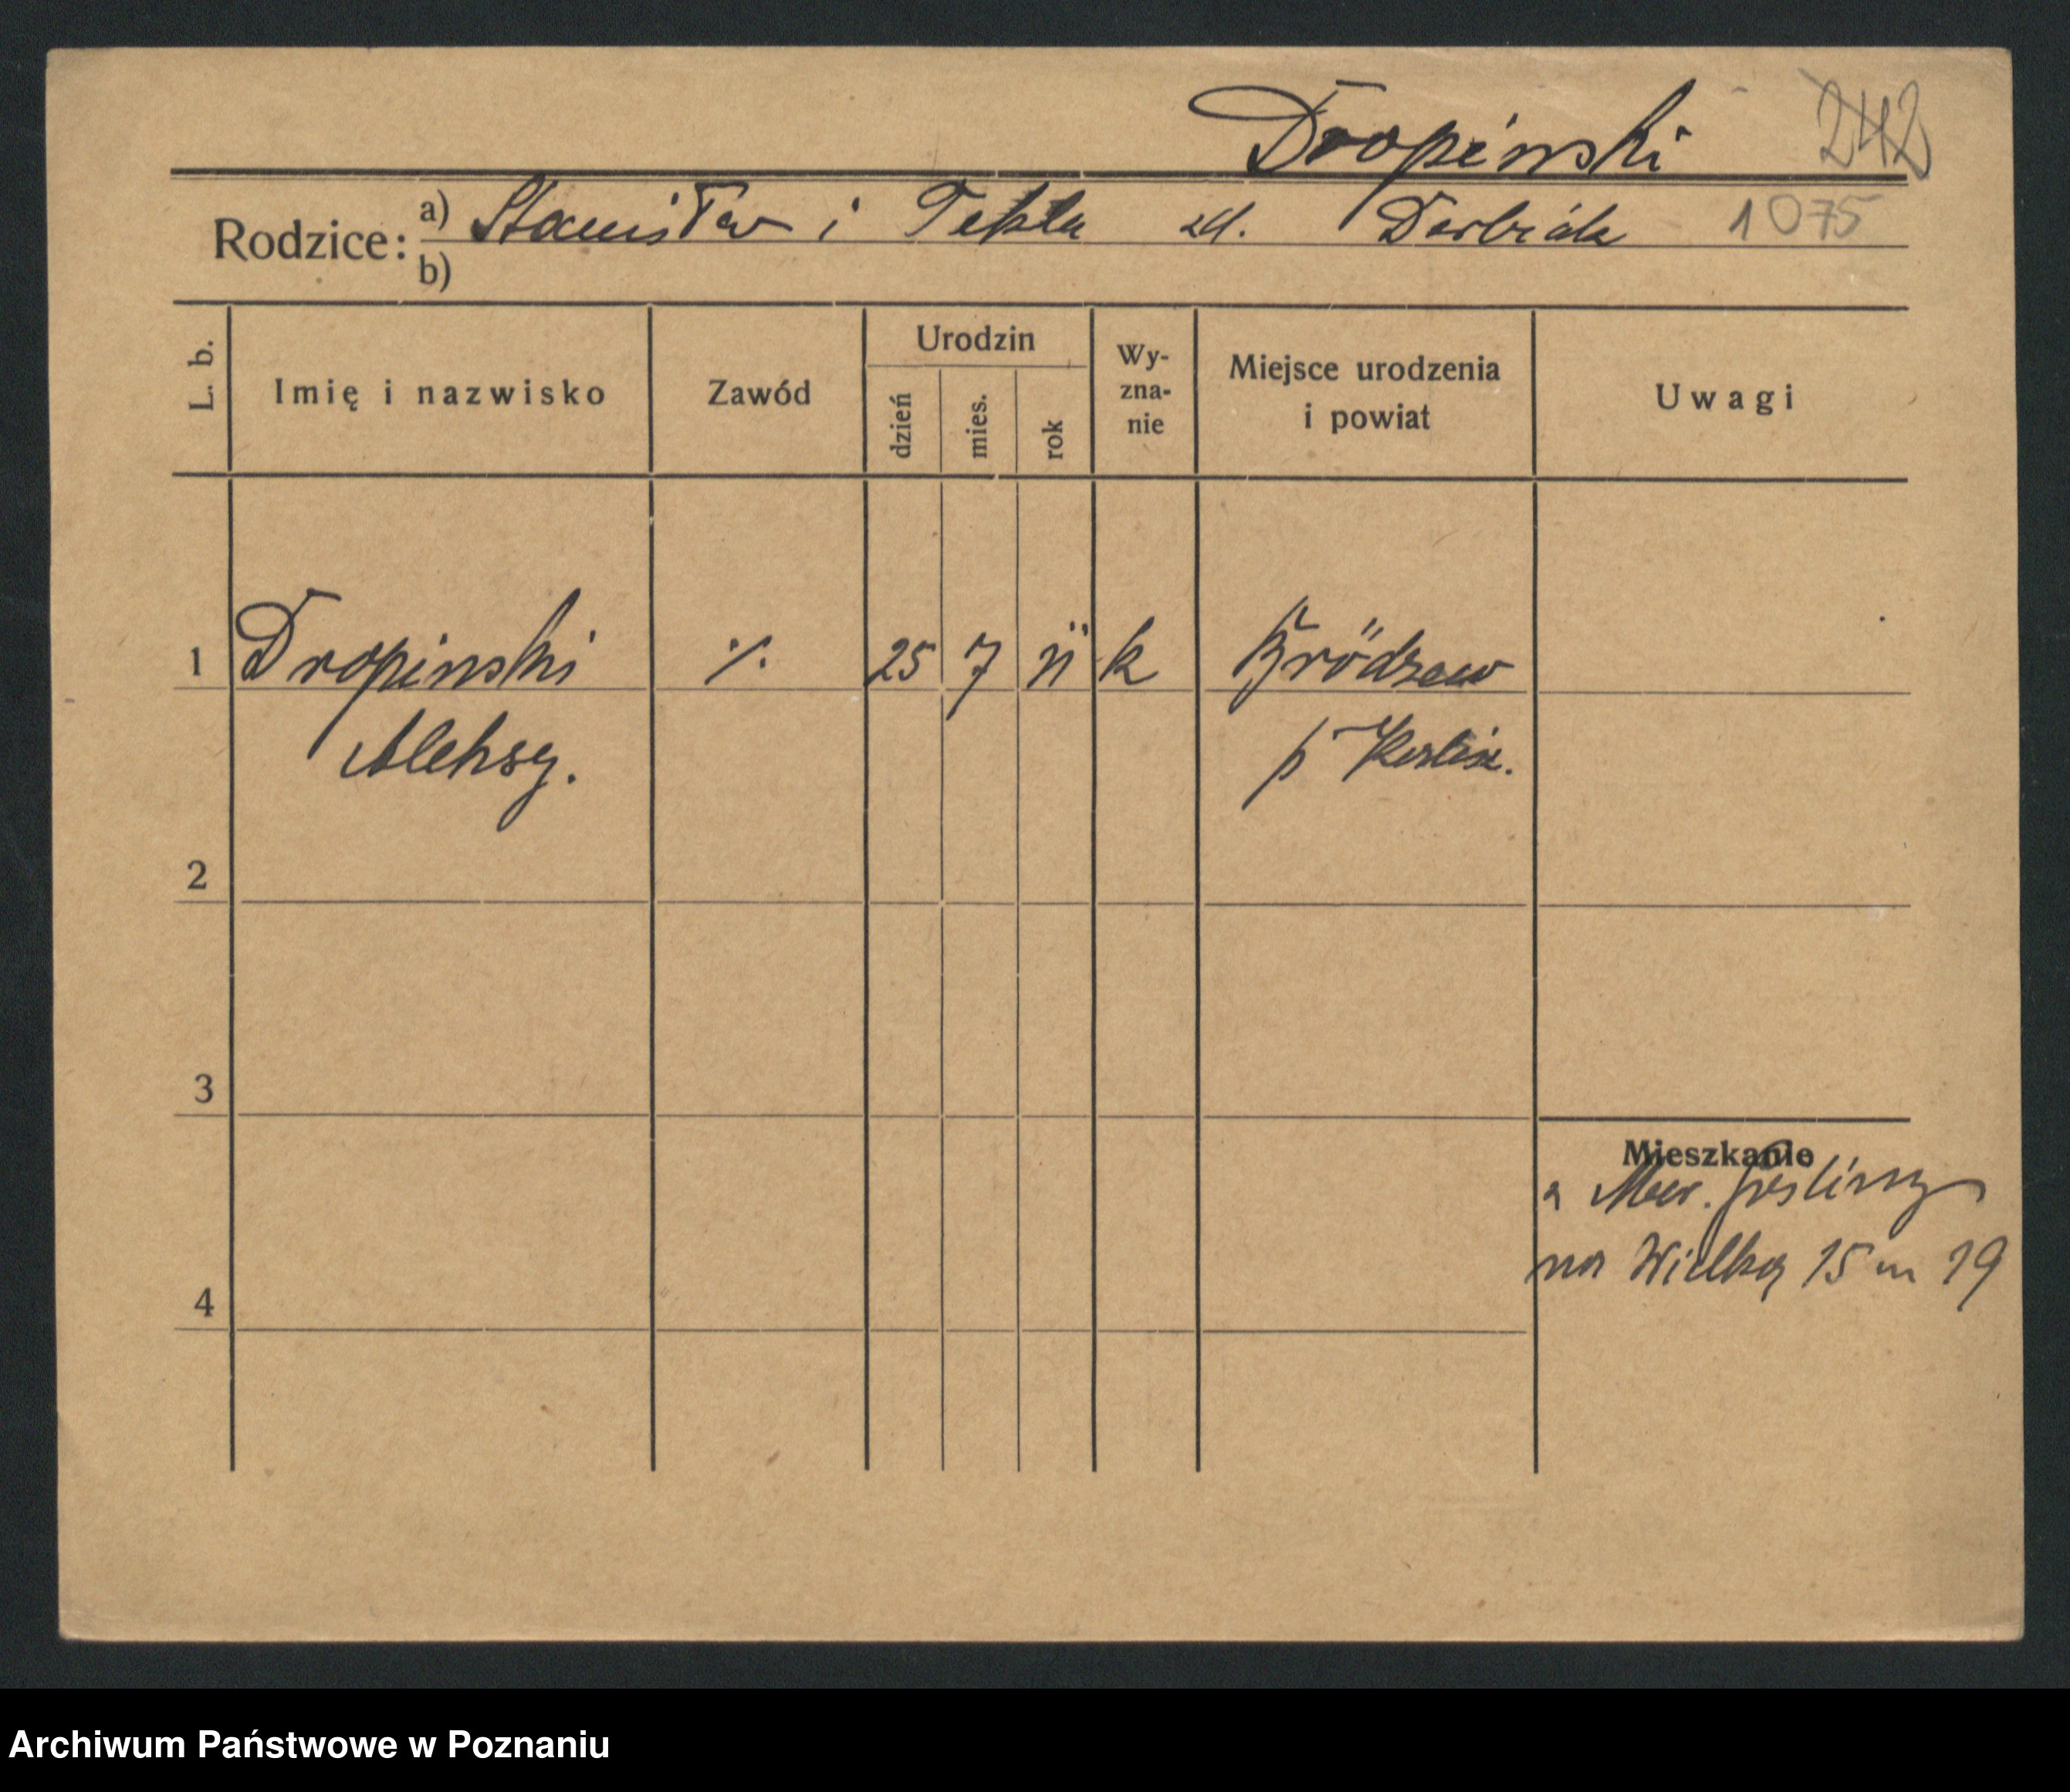 Dropinski 242
Rodzice: a) Stanisław i Tekla zd. Darbiák 1075
b)
L. b. Imię i nazwisko Zawód Urodzin dzień mies. rok Wy-zna-nie Miejsce urodzenia i powiat Uwagi
1 Dropinski ·/. 25 7 11 k Brödzew
Aleksy. p Kalisz.
2
3
Mieszkanie
na Wielką 15 m 19
4
Archiwum Państwowe w Poznaniu